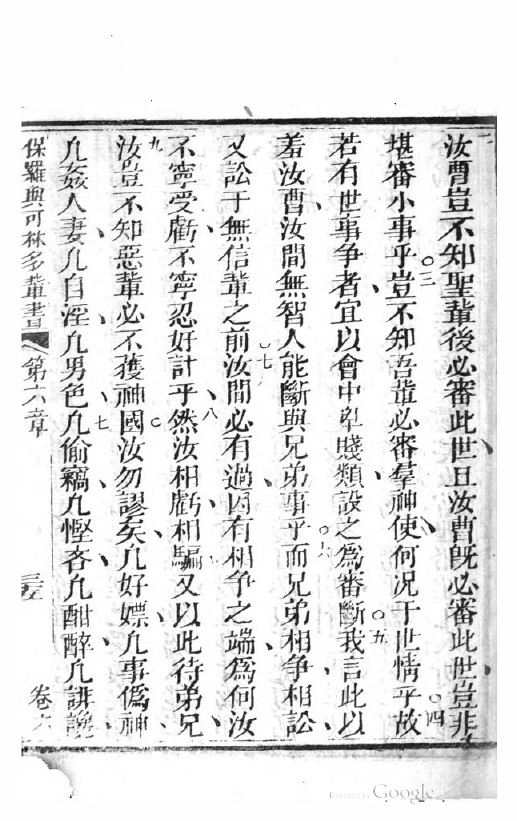 汝曹豈不知聖軰後必審此世且汝曹旣必審此世豈非
堪審小事乎○三豈不知吾軰必審羣神使何況于世情乎○四故
若有世事争者宜以會中卑賤類設之爲審斷○五我言此以
羞汝曹汝間無智人能斷與兄弟事乎○六而兄弟相争相訟
又訟于無信軰之前○七汝間必有過因有相争之端爲何汝
不寧受虧不寧忍好計乎○八然汝相虧相騙又以此待弟兄
○九汝豈不知惡軰必不獲神國汝勿謬矣凡好嫖凡事僞神
凡姦人妻凡自淫凡男色凡偷竊凡慳吝凡酣醉凡誹謗
保羅與可林多軰書 第六章 三五 卷六
Digitized by Google